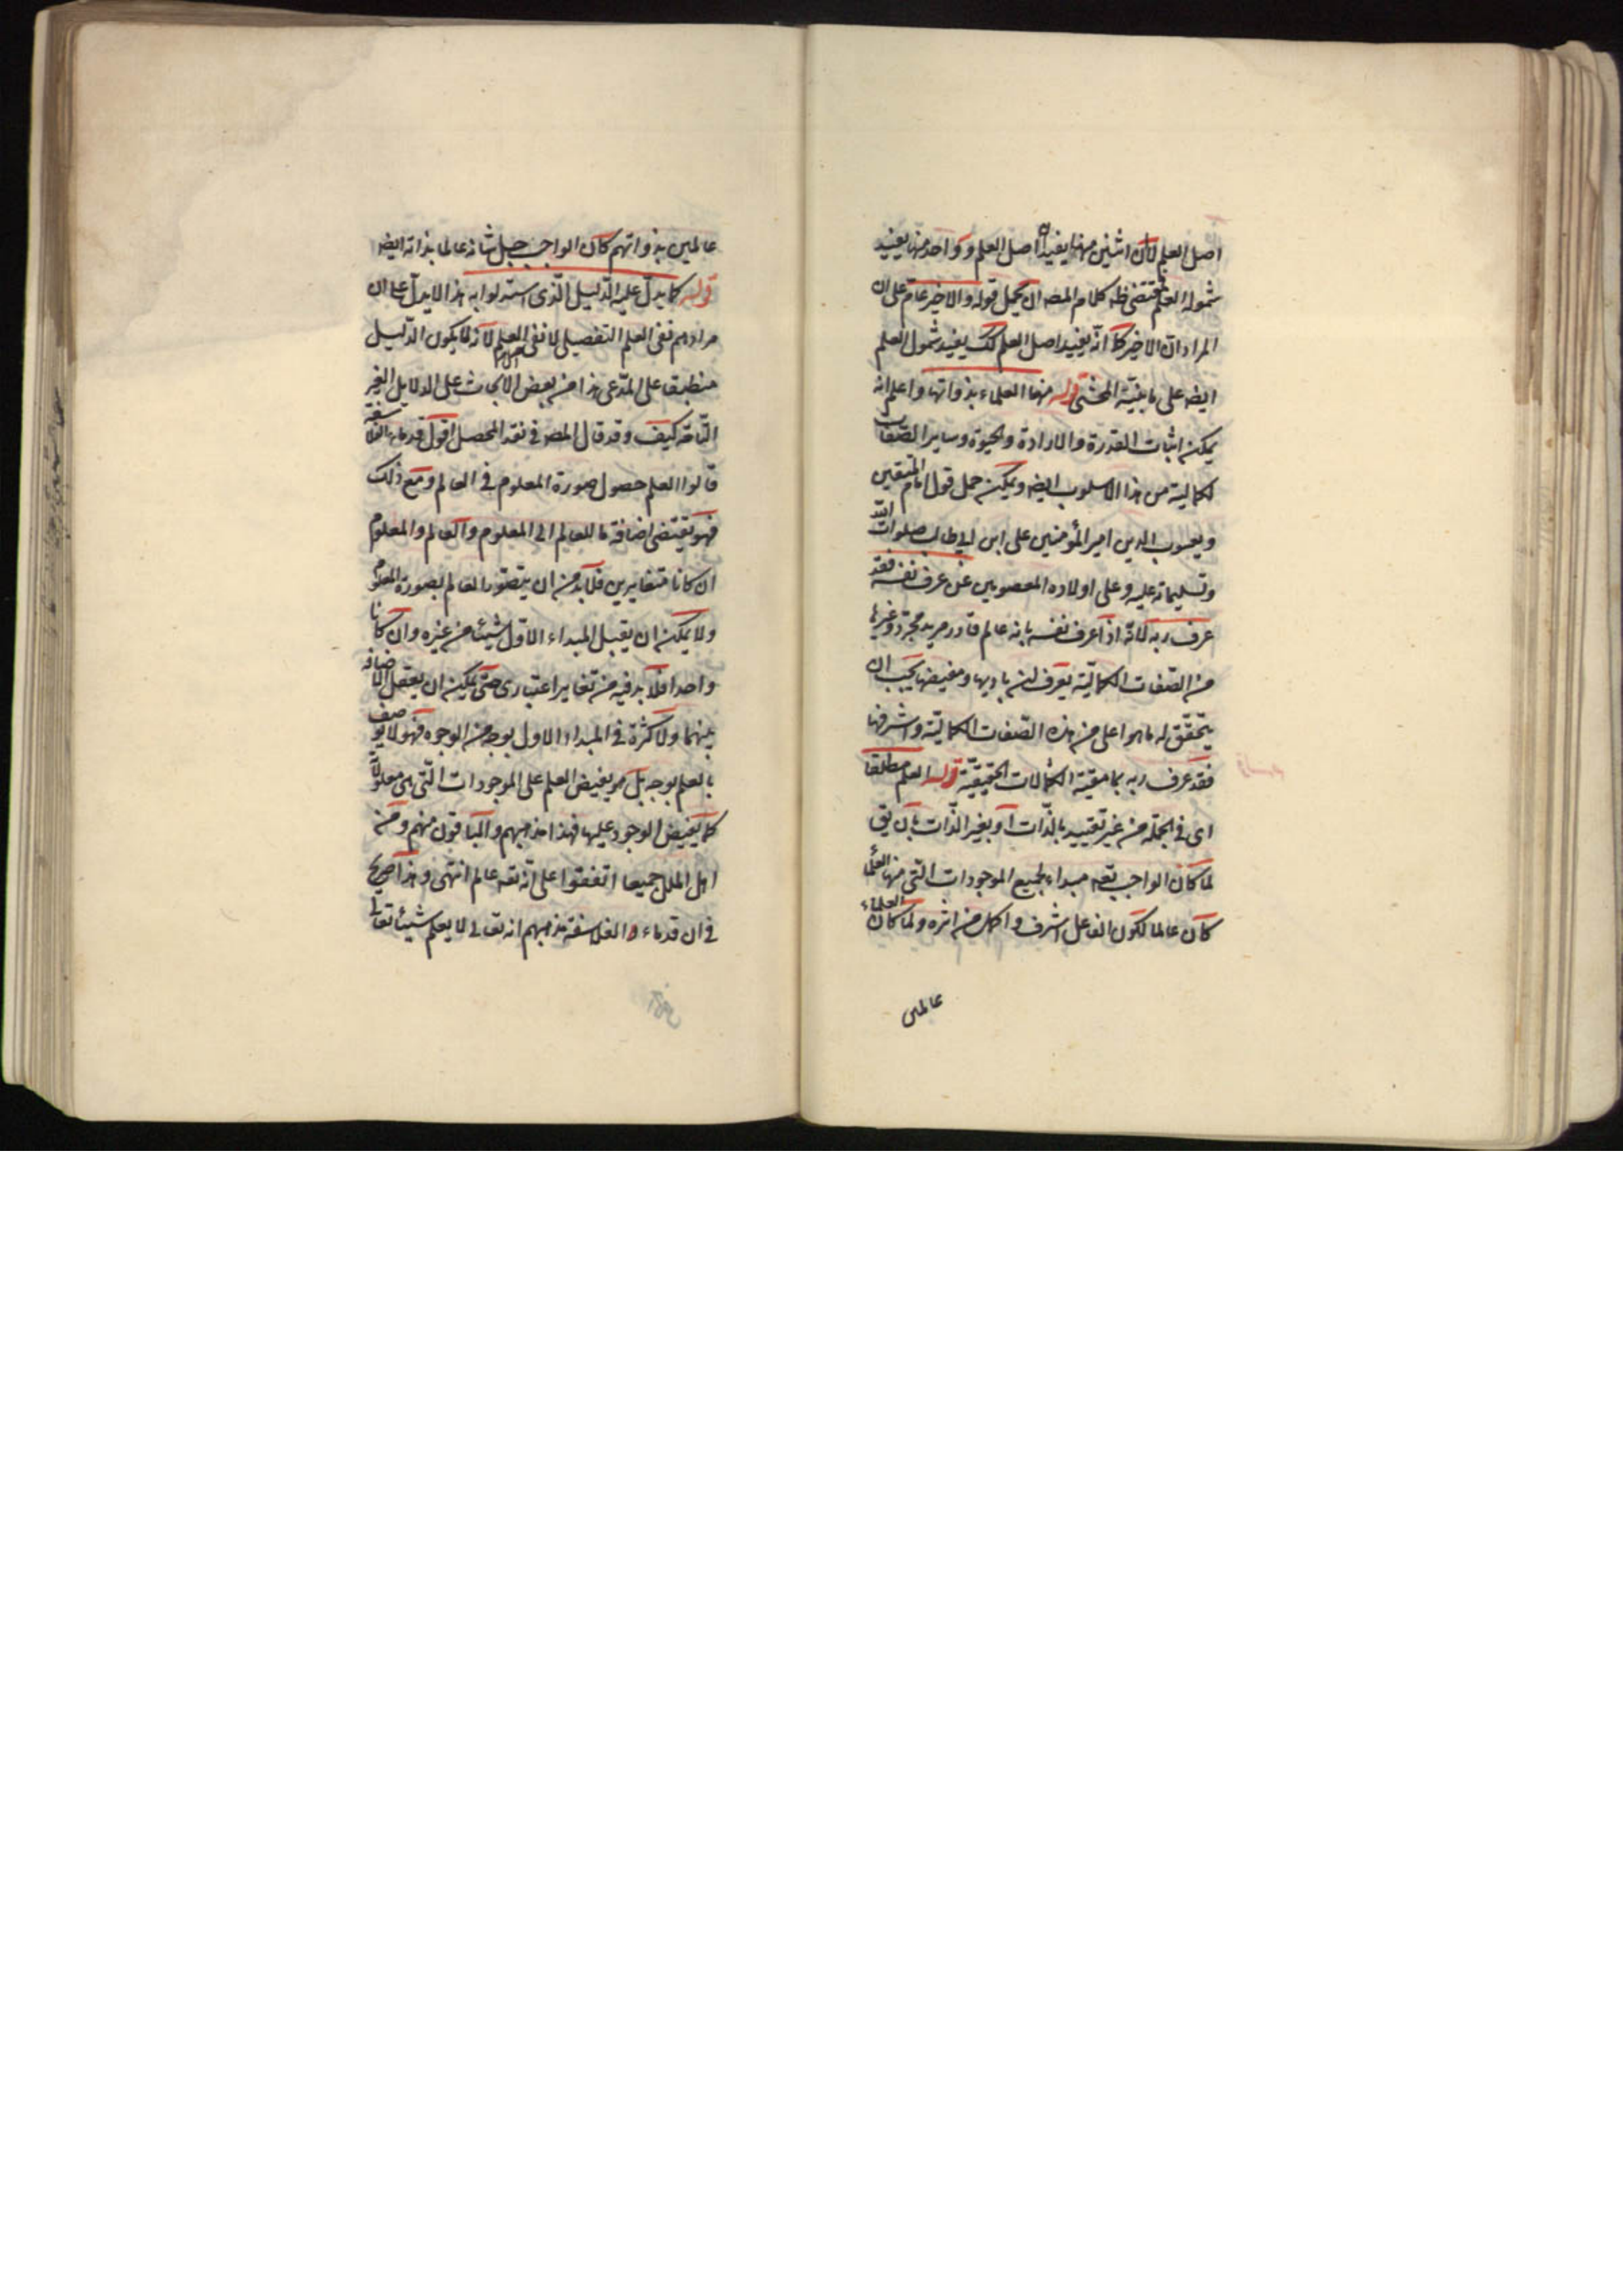 اصل العلم لأن اثنين منها يفيد اصل العلم وواحد منها يفيد
شمول العلم فمقتضى ظ كلام المص ان يحمل قوله والاخير عام على ان
المراد ان الاخير كما انه يفيد اصل العلم كك يفيد شمول العلم
ايضه على ما بينه المحشى قوله منها العلماء بذواتها واعلم انه
يمكن اثبات القدرة والارادة والحيوة وساير الصفات
الكمالية من هذا الاسلوب ايضه ويمكن حمل قول امام المتقين
ويعسوب الدين امير المؤمنين على ابن ابى طالب صلوات الله
وتسليماته عليه وعلى اولاده المعصومين من عرف نفسه فقد
عرف ربه لانه اذا عرف نفسه بانه عالم قادر مريد مجرد وغيرها
من الصفات الكمالية يعرف ان باديها ومفيضها يجب ان
يتحقق له ما هو اعلى من هذه الصفات الكمالية واشرفها
فقد عرف ربه بما الكمالات الحقيقية قوله العلم مطلقا
اى فى الجملة من غير تقييد بالذات او بغير الذات بان يق
لما كان الواجب تعه مبداء لجميع الموجودات التى منها العلماء
كان عالما لكون الفاعل اشرف واكمل من اثره ولما كان العلماء
عالمين
عالمين بذواتهم كان الواجب جل شانه عالما بذاته ايضه
قوله كما يدل عليه الدليل الذى استدلوا به هذا لا يدل على ان
مرادهم نفى العلم التفصيلى لا نفى العلم لانه لا يكون الدليل
منطبقا على المدعى هذا من بعض الابحاث على الدلايل الغير
التامة كيف وقد قال المص فى نقد المحصل اقول قدماء الفلاسفة
قالوا العلم حصول صورة المعلوم فى العالم ومع ذلك
فهو يقتضى اضافة ما للعالم الى المعلوم والعالم والمعلوم
ان كانا متغايرين فلا بد من ان يتصور العالم بصورة المعلوم
ولا يمكن ان يقبل المبداء الاول شيئا من غيره وان كانا
واحدا فلا بد فيه من تغاير اعتبارى حتى يمكن ان يعقل الاضافة
بينهما ولا كثرة فى المبداء الاول بوجه من الوجوه فهو لا يوصف
بالعلم بوجه بل هو يفيض العلم على الموجودات التى هى معلولاته
كما يفيض الوجود عليها فهذا مذهبهم والباقون منهم ومن
اهل الملل جميعا اتفقوا على انه تعه عالم انتهى وهذا صريح
فى ان قدماء الفلاسفة مذهبهم انه تعالى لا يعلم شيئا